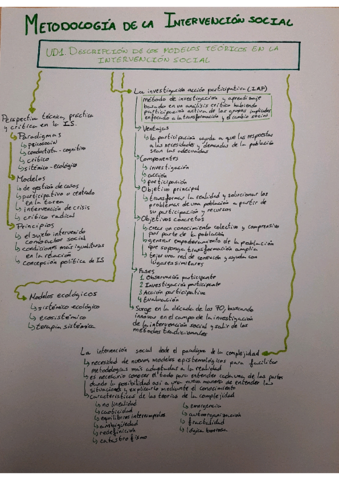 METODOLOGÍA DE LA INTERVENCIÓN SOCIAL
UD1. DESCRIPCIÓN DE LOS MODELOS TEÓRICOS EN LA
INTERVENCIÓN SOCIAL
Perspectiva técnica, práctica
y crítica en la IS.
Paradigmas
psicosocial
conductual - cognitivo
crítico
sistémico - ecológico
Modelos
de gestión de casos
participativo o centrado
en la tarea
intervención de crisis
crítico radical
Principios
el sujeto intervenido
constructor social
condiciones más igualitarias
en la relación
Concepción política de IS
Modelos ecológicos
sistémico ecológico
ecosistémico
terapia sistémica
La investigación acción participativa (IAP)
método de investigación y aprendizaje
basado en un análisis crítico habiendo
participación activa de los grupos implicados
enfocado a la transformación y el cambio social
Ventajas
la participación ayuda a que las respuestas
a las necesidades y demandas de la población
sean las adecuadas
Componentes
investigación
acción
participación
Objetivo principal
transformar la realidad y solucionar los
problemas de una población a partir de
su participación y recursos
Objetivos concretos
crear un conocimiento colectivo y compartido
por parte de la población
generar empoderamiento de la población
que suponga transformación amplia
tejer una red de conexión y ayuda con
lugares similares
Fases
1 Observación participante
2 Investigación participante
3 Acción participativa
4 Evaluación
Surge en la década de los 70, buscando
innovar en el campo de la investigación
de la intervención social y salir de los
métodos tradicionales
La intervención social desde el paradigma de la complejidad
necesidad de nuevos modelos epistemológicos para facilitar
metodologías más adaptadas a la realidad
es necesario conocer el todo para entender cada una de las partes
dando la posibilidad así a una nueva manera de entender las
situaciones y explicarlo mediante el conocimiento
Características de las teorías de la complejidad
no linealidad
caoticidad
equilibrios interrumpidos
ambigüedad
redefinición
incertidumbre
emergencia
autoorganización
fractalidad
lógica borrosa